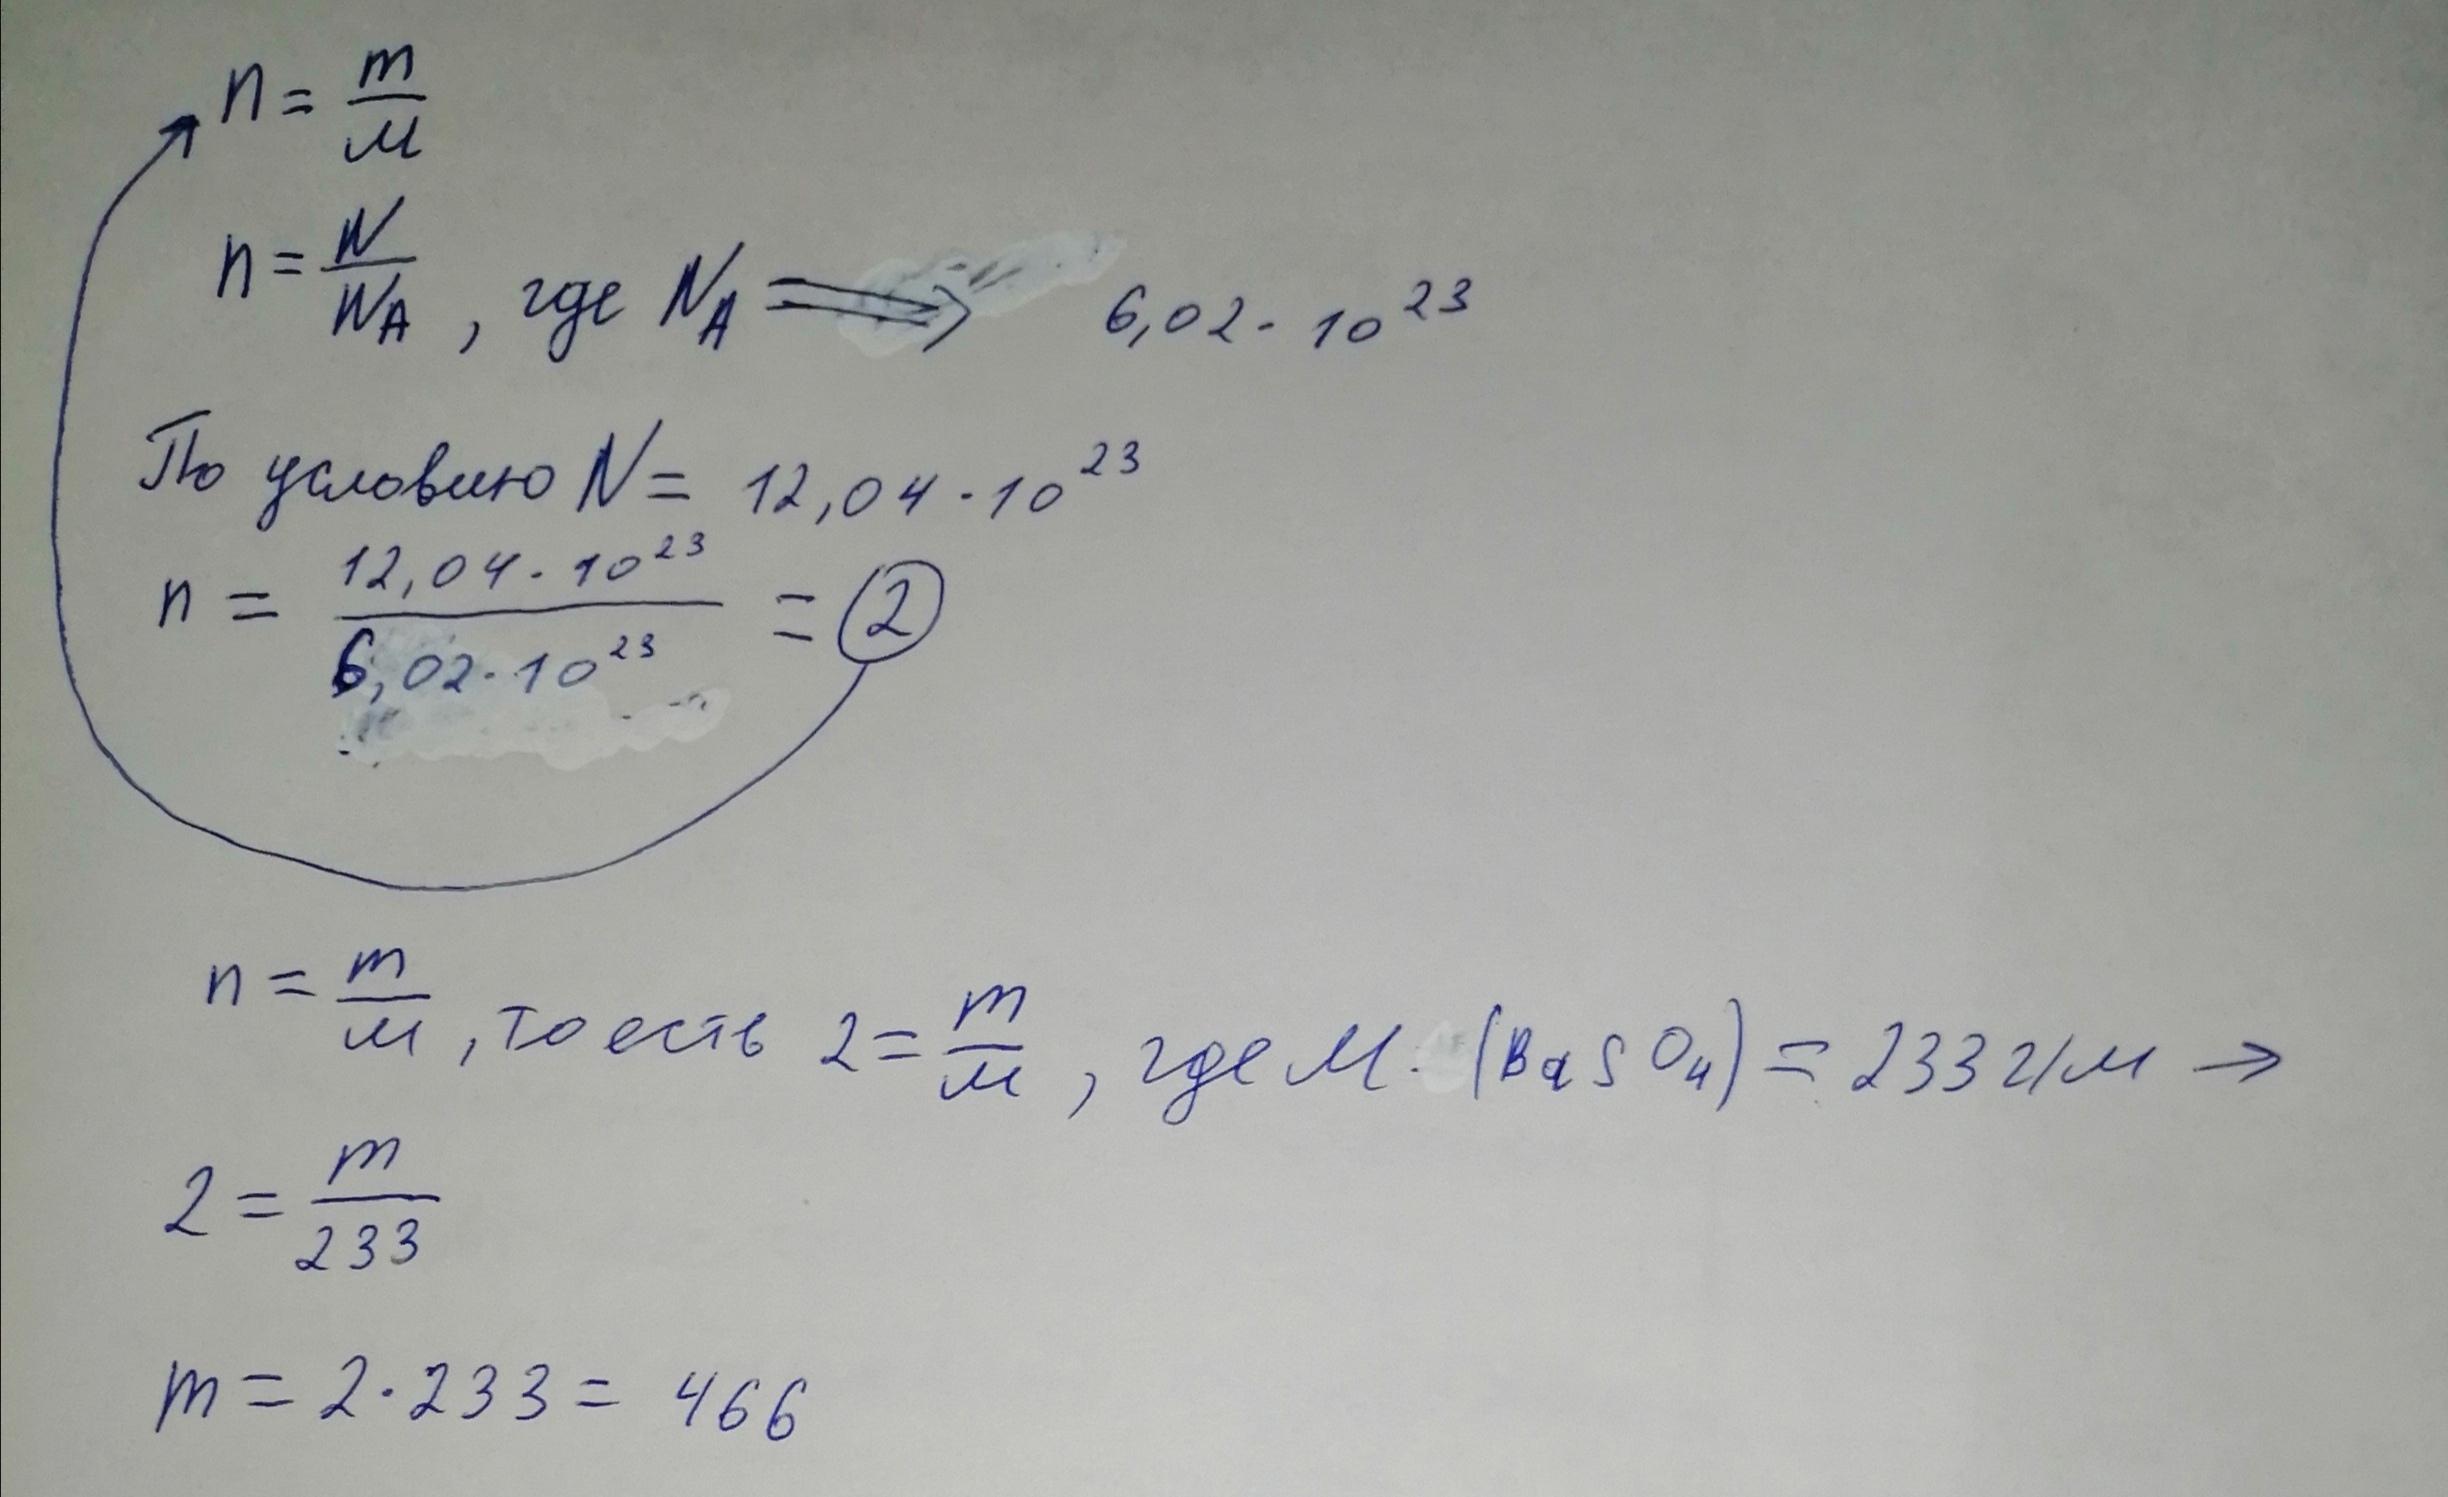 n = m/M
n = N/NA, где NA ⟹ 6,02 · 10²³
По условию N = 12,04 · 10²³
n = 12,04 · 10²³ / 6,02 · 10²³ = 2
n = m/M, то есть 2 = m/M, где M (BaSO₄) = 233 г/м →
2 = m/233
m = 2 · 233 = 466